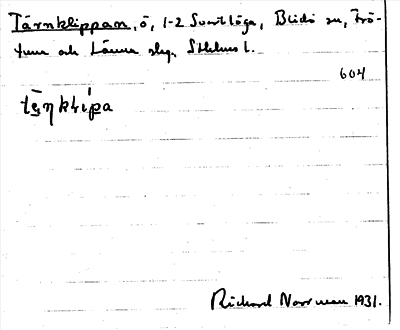 Tärnklippan, ö, 1-2 Svartlöga, Blidö sn, Frö-
tuna och Länna skg. Sthlms l.
604
tǣ̣ŋklípa
Richard Norrman 1931.